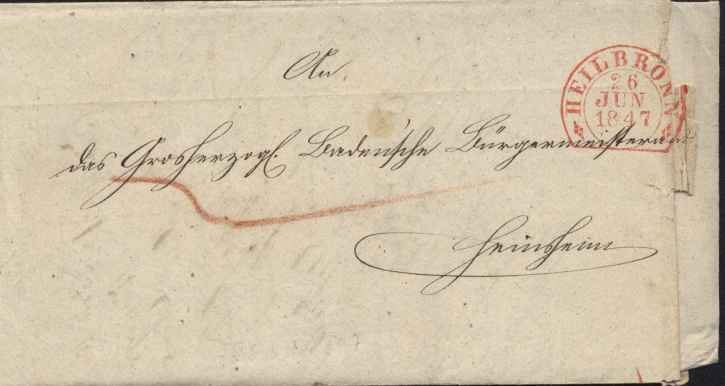 An.
HEILBRONN
26
JUN
1847
das Grosherzogl. Badensche Bürgermeisteramt
Heinsheim